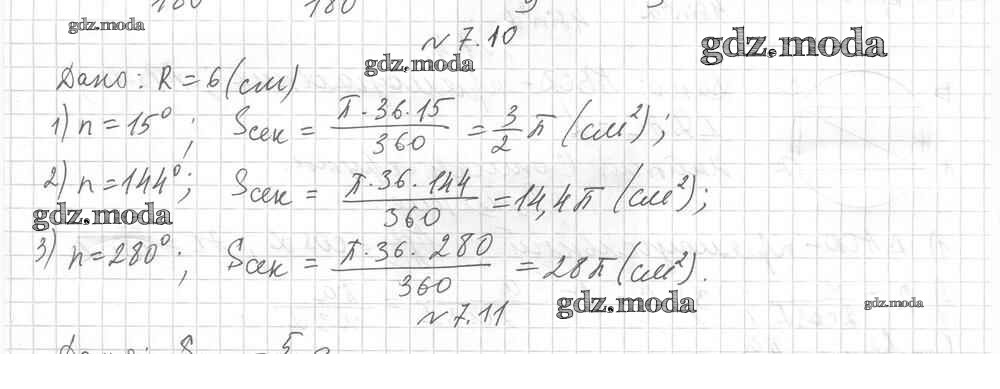 180 180
gdz.moda
№ 7.10
gdz.moda
gdz.moda
Дано: R = 6 (см)
1) n = 15°; Sсек = π·36·15 / 360 = 3/2 π (см²);
2) n = 144°; Sсек = π·36·144 / 360 = 14,4π (см²);
gdz.moda
3) n = 280°; Sсек = π·36·280 / 360 = 28π (см²).
gdz.moda
gdz.moda
№ 7.11